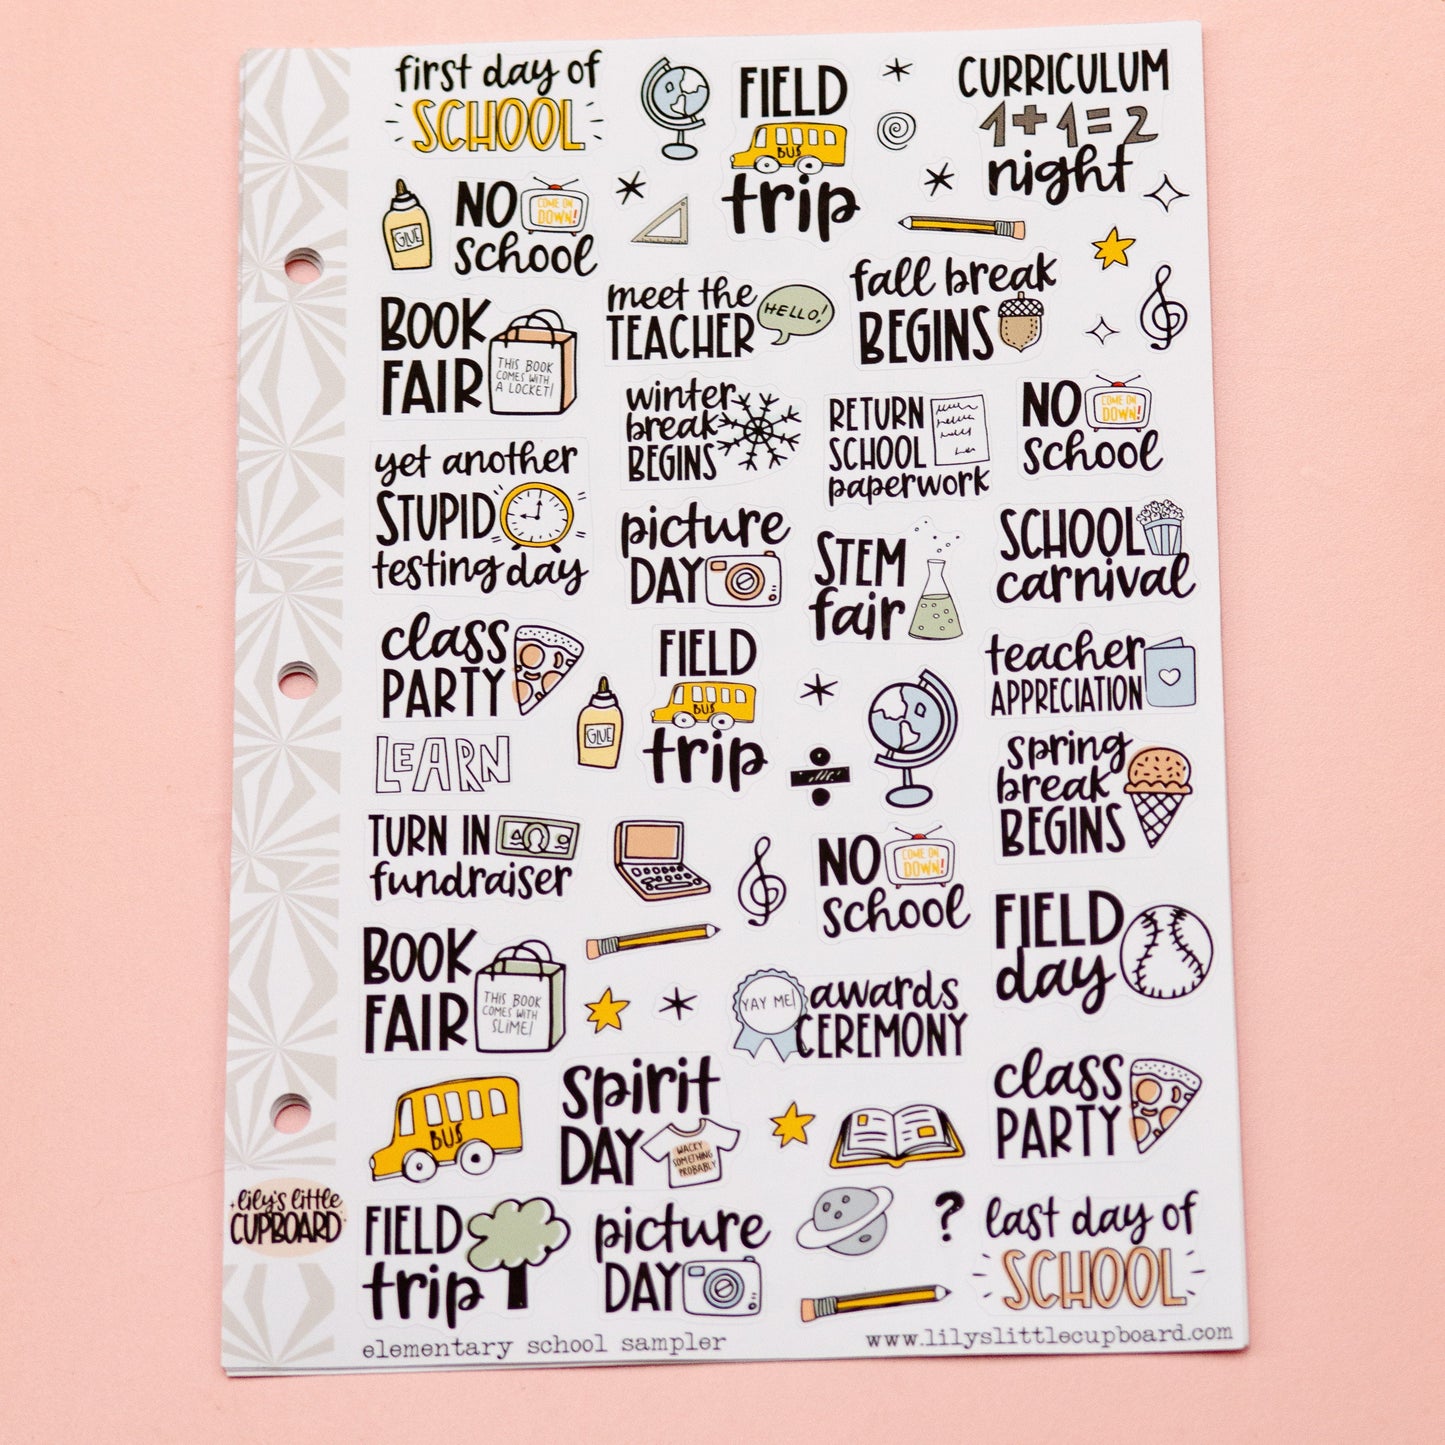 first day of
SCHOOL
FIELD
BUS
trip
CURRICULUM
1+1=2
night
GLUE
NO
COME ON
DOWN!
school
BOOK
FAIR
THIS BOOK
COMES WITH
A LOCKET!
meet the
TEACHER
HELLO!
fall break
BEGINS
winter
break
BEGINS
RETURN
SCHOOL
paperwork
NO
COME ON
DOWN!
school
yet another
STUPID
testing day
picture
DAY
STEM
fair
SCHOOL
carnival
class
PARTY
GLUE
FIELD
BUS
trip
teacher
APPRECIATION
LEARN
spring
break
BEGINS
TURN IN
fundraiser
NO
COME ON
DOWN!
school
FIELD
day
BOOK
FAIR
THIS BOOK
COMES WITH
SLIME!
YAY ME!
awards
CEREMONY
BUS
spirit
DAY
WACKY
SOMETHING
PROBABLY
class
PARTY
lily's little
CUPBOARD
FIELD
trip
picture
DAY
?
last day of
SCHOOL
elementary school sampler
www.lilyslittlecupboard.com